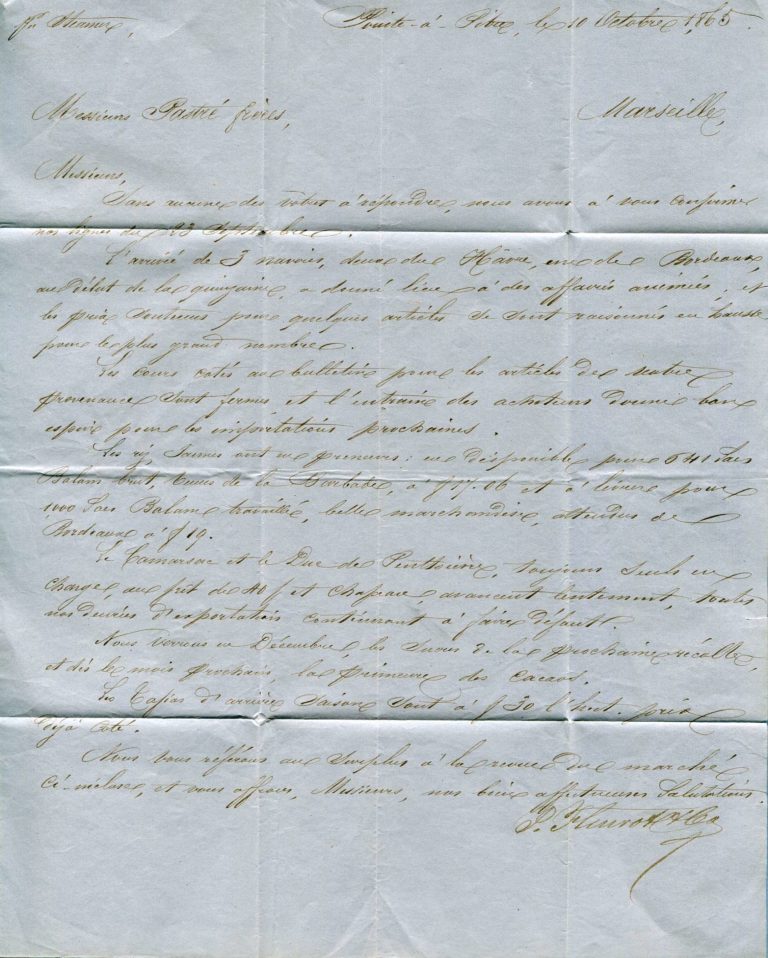 Pr Steamer,
Pointe-à-Pitre, le 10 Octobre 1865.
Messieurs Pastré frères,
Marseille,
Messieurs,
Sans aucune des vôtres à répondre, nous avons à vous confirmer
nos lignes du 23 Septembre.
L'arrivée de 3 navires, deux du Hâvre, un de Bordeaux,
au début de la quinzaine, a donné lieu à des affaires animées, et
les prix soutenus pour quelques articles se sont raisonnés en hausse
pour le plus grand nombre.
Les cours cotés au bulletin pour les articles de votre
provenance sont fermes, et l'entrain des acheteurs donne bon
espoir pour les importations prochaines.
Les riz jaunes ont eu preneurs: en disponible pour 641 Sacs
Balam brut, venus de la Barbade, à f 17.06 et à livrer pour
1000 Sacs Balam travaillé, belle marchandise, attendus de
Bordeaux à f 19.
Le Camarsac et le Duc de Penthièvre, toujours seuls en
charge au frêt de 40 f et chapeau, avancent lentement, toutes
nos denrées d'exportation continuant à faire défaut.
Nous verrons en Décembre les Sucres de la prochaine récolte,
et dès le mois prochain, la primeur des cacaos.
Les Tafias d'arrière Saison sont à f 30 l'hect. prix
déjà coté.
Nous vous référons au Surplus à la revue du marché
ci-incluse, et vous offrons, Messieurs, nos bien affectueuses Salutations.
& Co